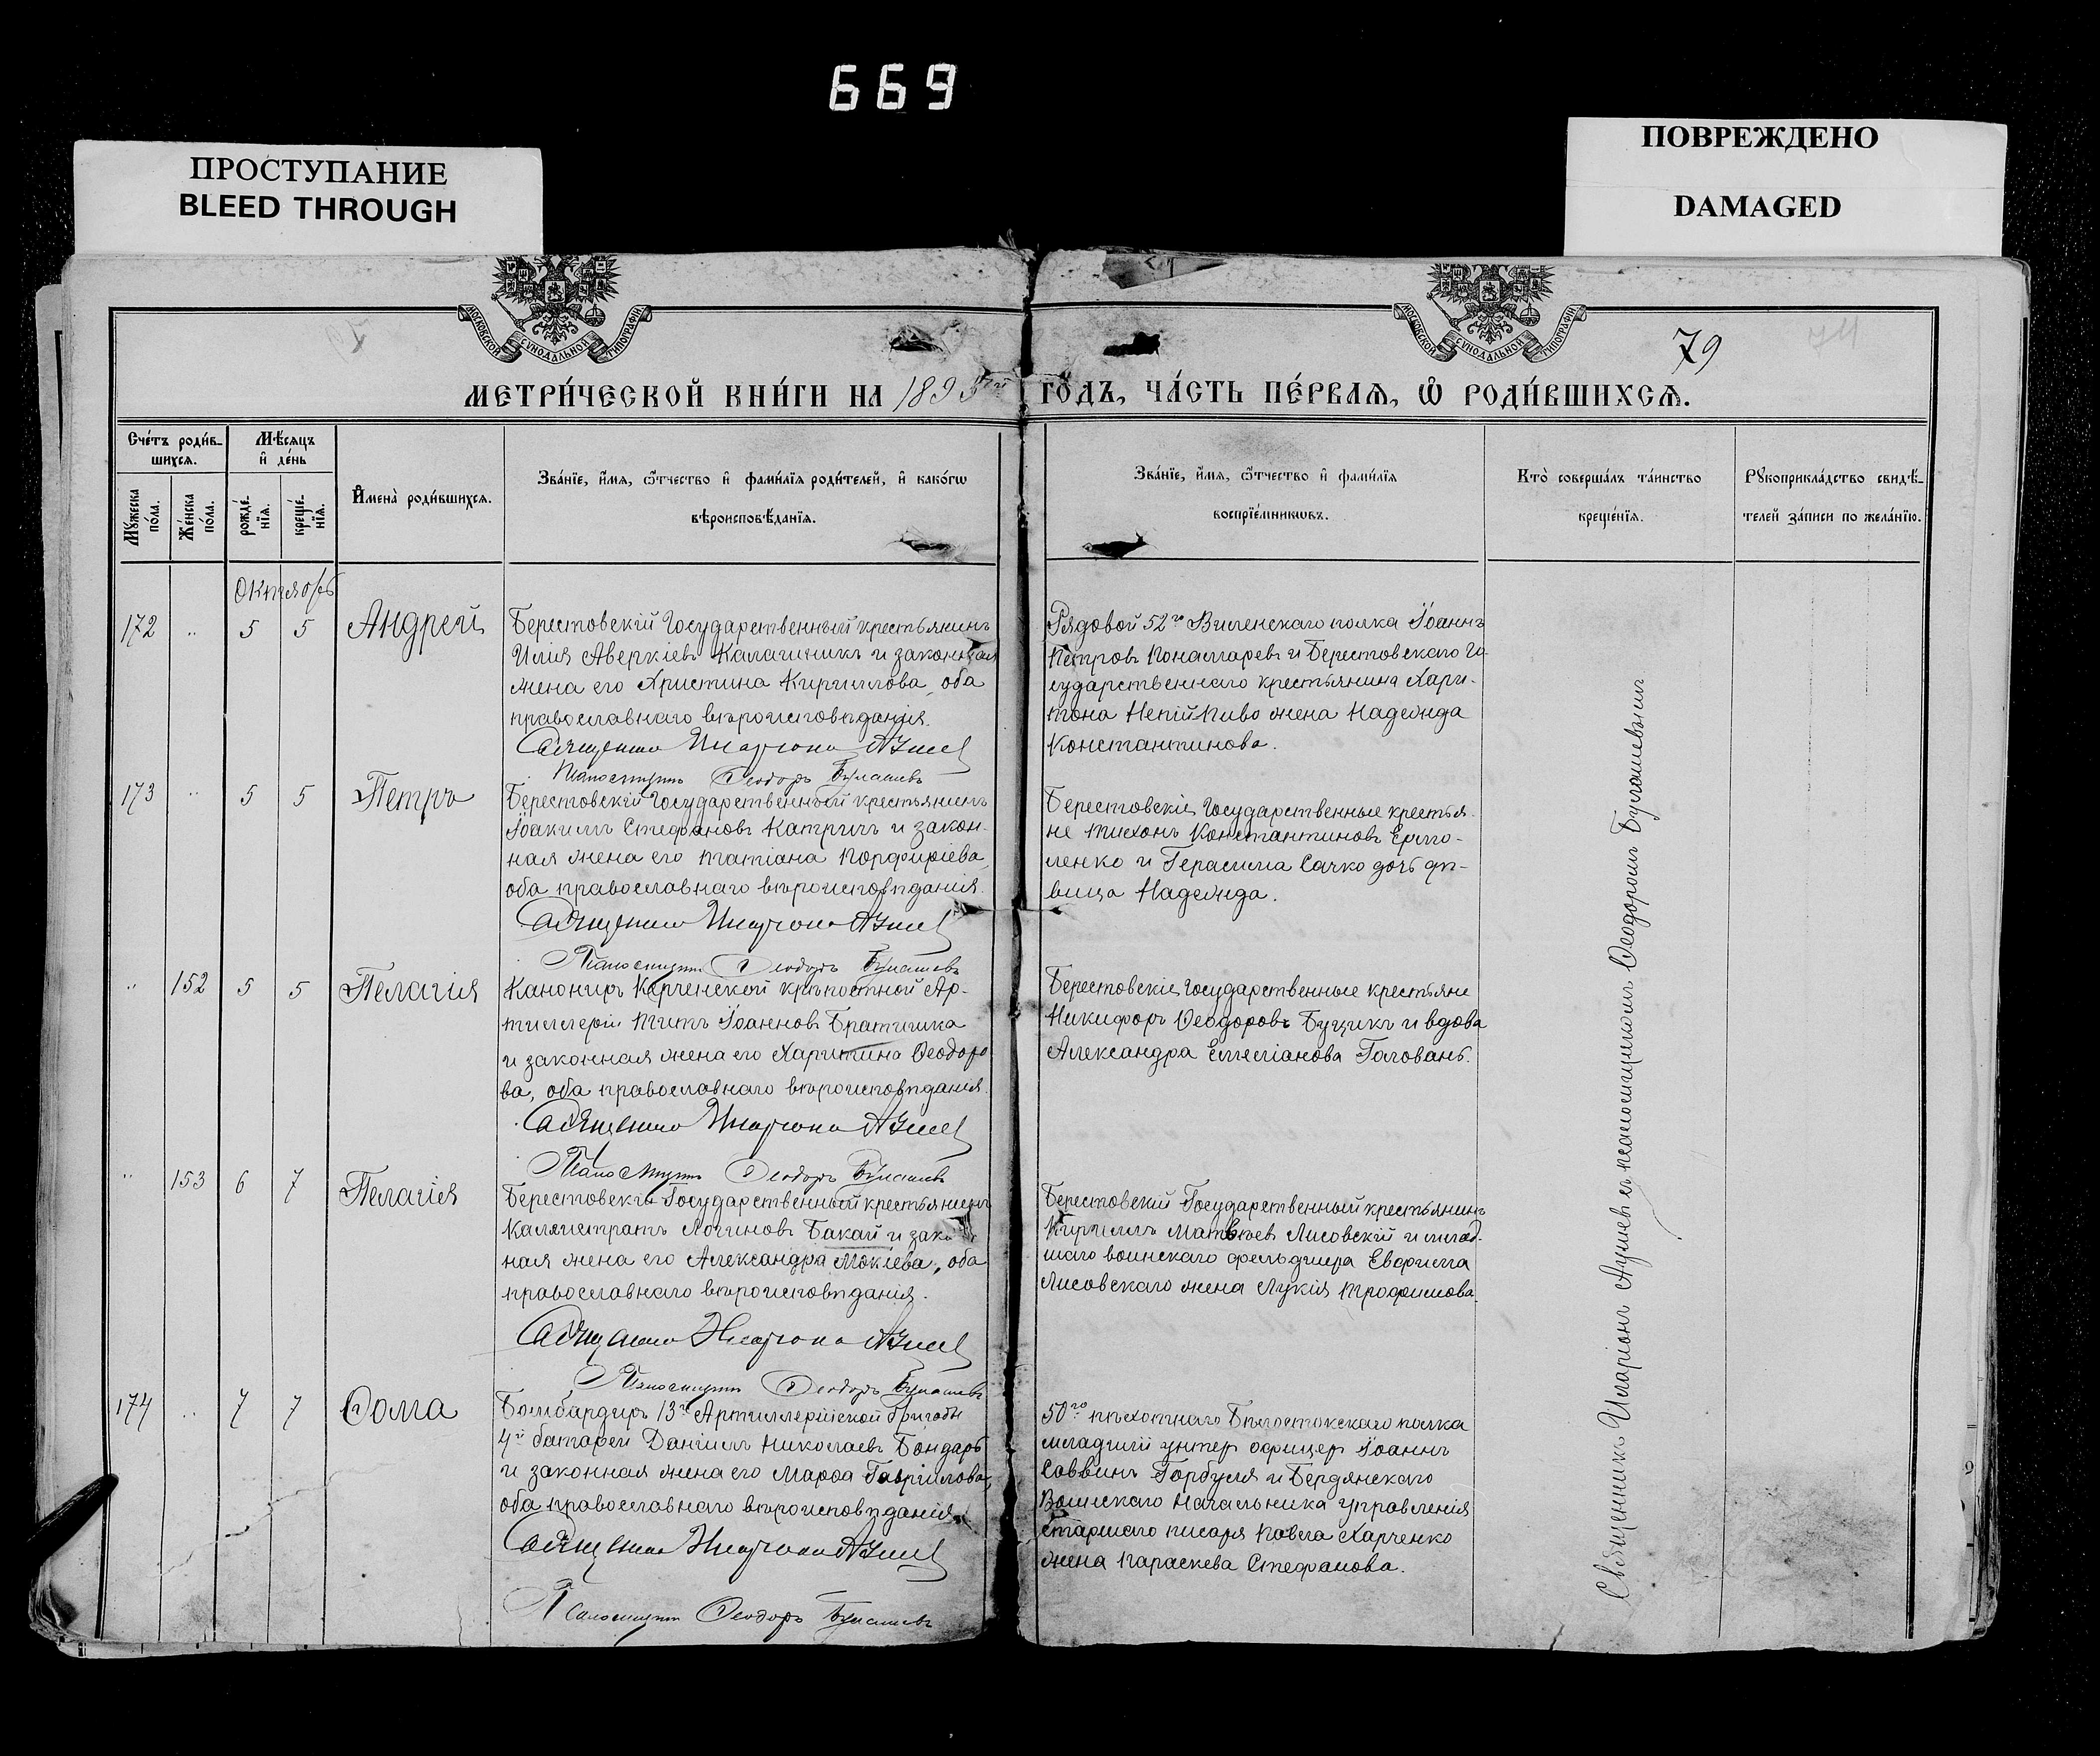 669
ПРОСТУПАНИЕ
BLEED THROUGH
ПОВРЕЖДЕНО
DAMAGED
МОСКОВСКОЙ СѴНОДАЛЬНОЙ ТИПОГРАФІИ
МОСКОВСКОЙ СѴНОДАЛЬНОЙ ТИПОГРАФІИ
79
МЕТРИ́ЧЕСКОЙ КНИ́ГИ НА 1895 ГО́ДЪ, ЧА́СТЬ ПЕ́РВАѦ, Ѽ РОДИ́ВШИХСѦ.
Сче́тъ роди́в-
шихсѧ.
Мѣ́сѧцъ
и҆ де́нь
Мꙋ́жеска
по́ла.
Же́нска
по́ла.
рожде́-
нїѧ.
креще́-
нїѧ.
И҆мена̀ роди́вшихсѧ.
Зва́нїе, и҆́мѧ, ѻ҆́тчество и҆ фами́лїѧ роди́телей, и҆ како́гѡ
вѣроисповѣ́данїѧ.
Зва́нїе, и҆́мѧ, ѻ҆́тчество и҆ фами́лїѧ
воспрїе́мникѡвъ.
Кто̀ соверша́лъ та́инство
креще́нїѧ.
Рꙋкоприкла́дство свидѣ́-
телей за́писи по жела́нїю.
Октябрь
172 „ 5 5 Андрей
Берестовскій Государственный крестьянинъ
Илія Аверкіевъ Калашникъ и законная
жена его Христина Кириллова, оба
православнаго вѣроисповѣданія.
Священникъ Иларіонъ Аулиев
Псаломщикъ Ѳеодоръ Булашевъ
Рядовой 52го Виленскаго полка Іоаннъ
Петровъ Понамаревъ и Берестовскаго Го-
сударственнаго крестьянина Хари-
тона Непійпиво жена Надежда
Константинова.
173 „ 5 5 Петръ
Берестовскій Государственный крестьянинъ
Іоакимъ Стефановъ Катричъ и закон-
ная жена его Татіана Порфиріева,
оба православнаго вѣроисповѣданія.
Священникъ Иларіонъ Аулиев
Псаломщикъ Ѳеодоръ Булашевъ
Берестовскіе Государственные крестья-
не Тихонъ Константиновъ Ермо-
ленко и Герасима Сачко дочь дѣ-
вица Надежда.
„ 152 5 5 Пелагія
Канониръ Керченской крѣпостной Ар-
тиллеріи Титъ Іоанновъ Братишка
и законная жена его Харитина Ѳеодоро
ва, оба православнаго вѣроисповѣданія.
Священникъ Иларіонъ Аулиев
Псаломщикъ Ѳеодоръ Булашевъ
Берестовскіе Государственные крестьяне
Никифоръ Ѳеодоровъ Буцикъ и вдова
Александра Емеліанова Головань.
„ 153 6 7 Пелагія
Берестовскій Государственный крестьянинъ
Каллистратъ Логиновъ Бакай и зако
ная жена его Александра Мокіева, оба
православнаго вѣроисповѣданія.
Священникъ Иларіонъ Аулиев
Псаломщикъ Ѳеодоръ Булашевъ
Берестовскій Государственный крестьянинъ
Кириллъ Матвѣев Лисовскій и млад-
шаго воинскаго фельдшера Евфима
Лисовскаго жена Лукія Трофимова.
174 „ 7 7 Ѳома
Бомбардиръ 13й Артиллерійской Бригады
4й батареи Даніилъ Николаевъ Бондарь
и законная жена его Марѳа Гавріилова,
оба православнаго вѣроисповѣданія.
Священникъ Иларіонъ Аулиев
Псаломщикъ Ѳеодоръ Булашевъ
50го пѣхотнаго Бѣлостокскаго полка
младшій унтер офицер Іоаннъ
Саввинъ Горбуля и Бердянскаго
Воинскаго Начальника управленія
старшаго писаря Павла Харченко
жена Параскева Стефанова.
Священникъ Иларіонъ Аулиев съ псаломщикомъ Ѳеодоромъ Булашевымъ